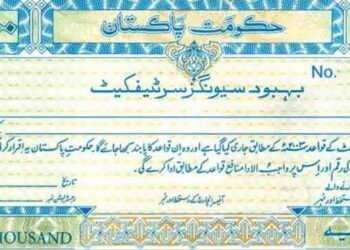 حکومت پاکستان
No.
بہبود سیونگز سرٹیفکیٹ
کے قواعد ۲۰۰۳ء کے مطابق جاری کیا گیا ہے اور وہ ان قواعد کا پابند سمجھا جائے گا۔ حکومت پاکستان یہ اقرار کر
کی رقم اور اس پر واجب الادا منافع قواعد کے مطابق ادا کرے گی۔
تاریخ
رجسٹریشن نمبر
THOUSAND